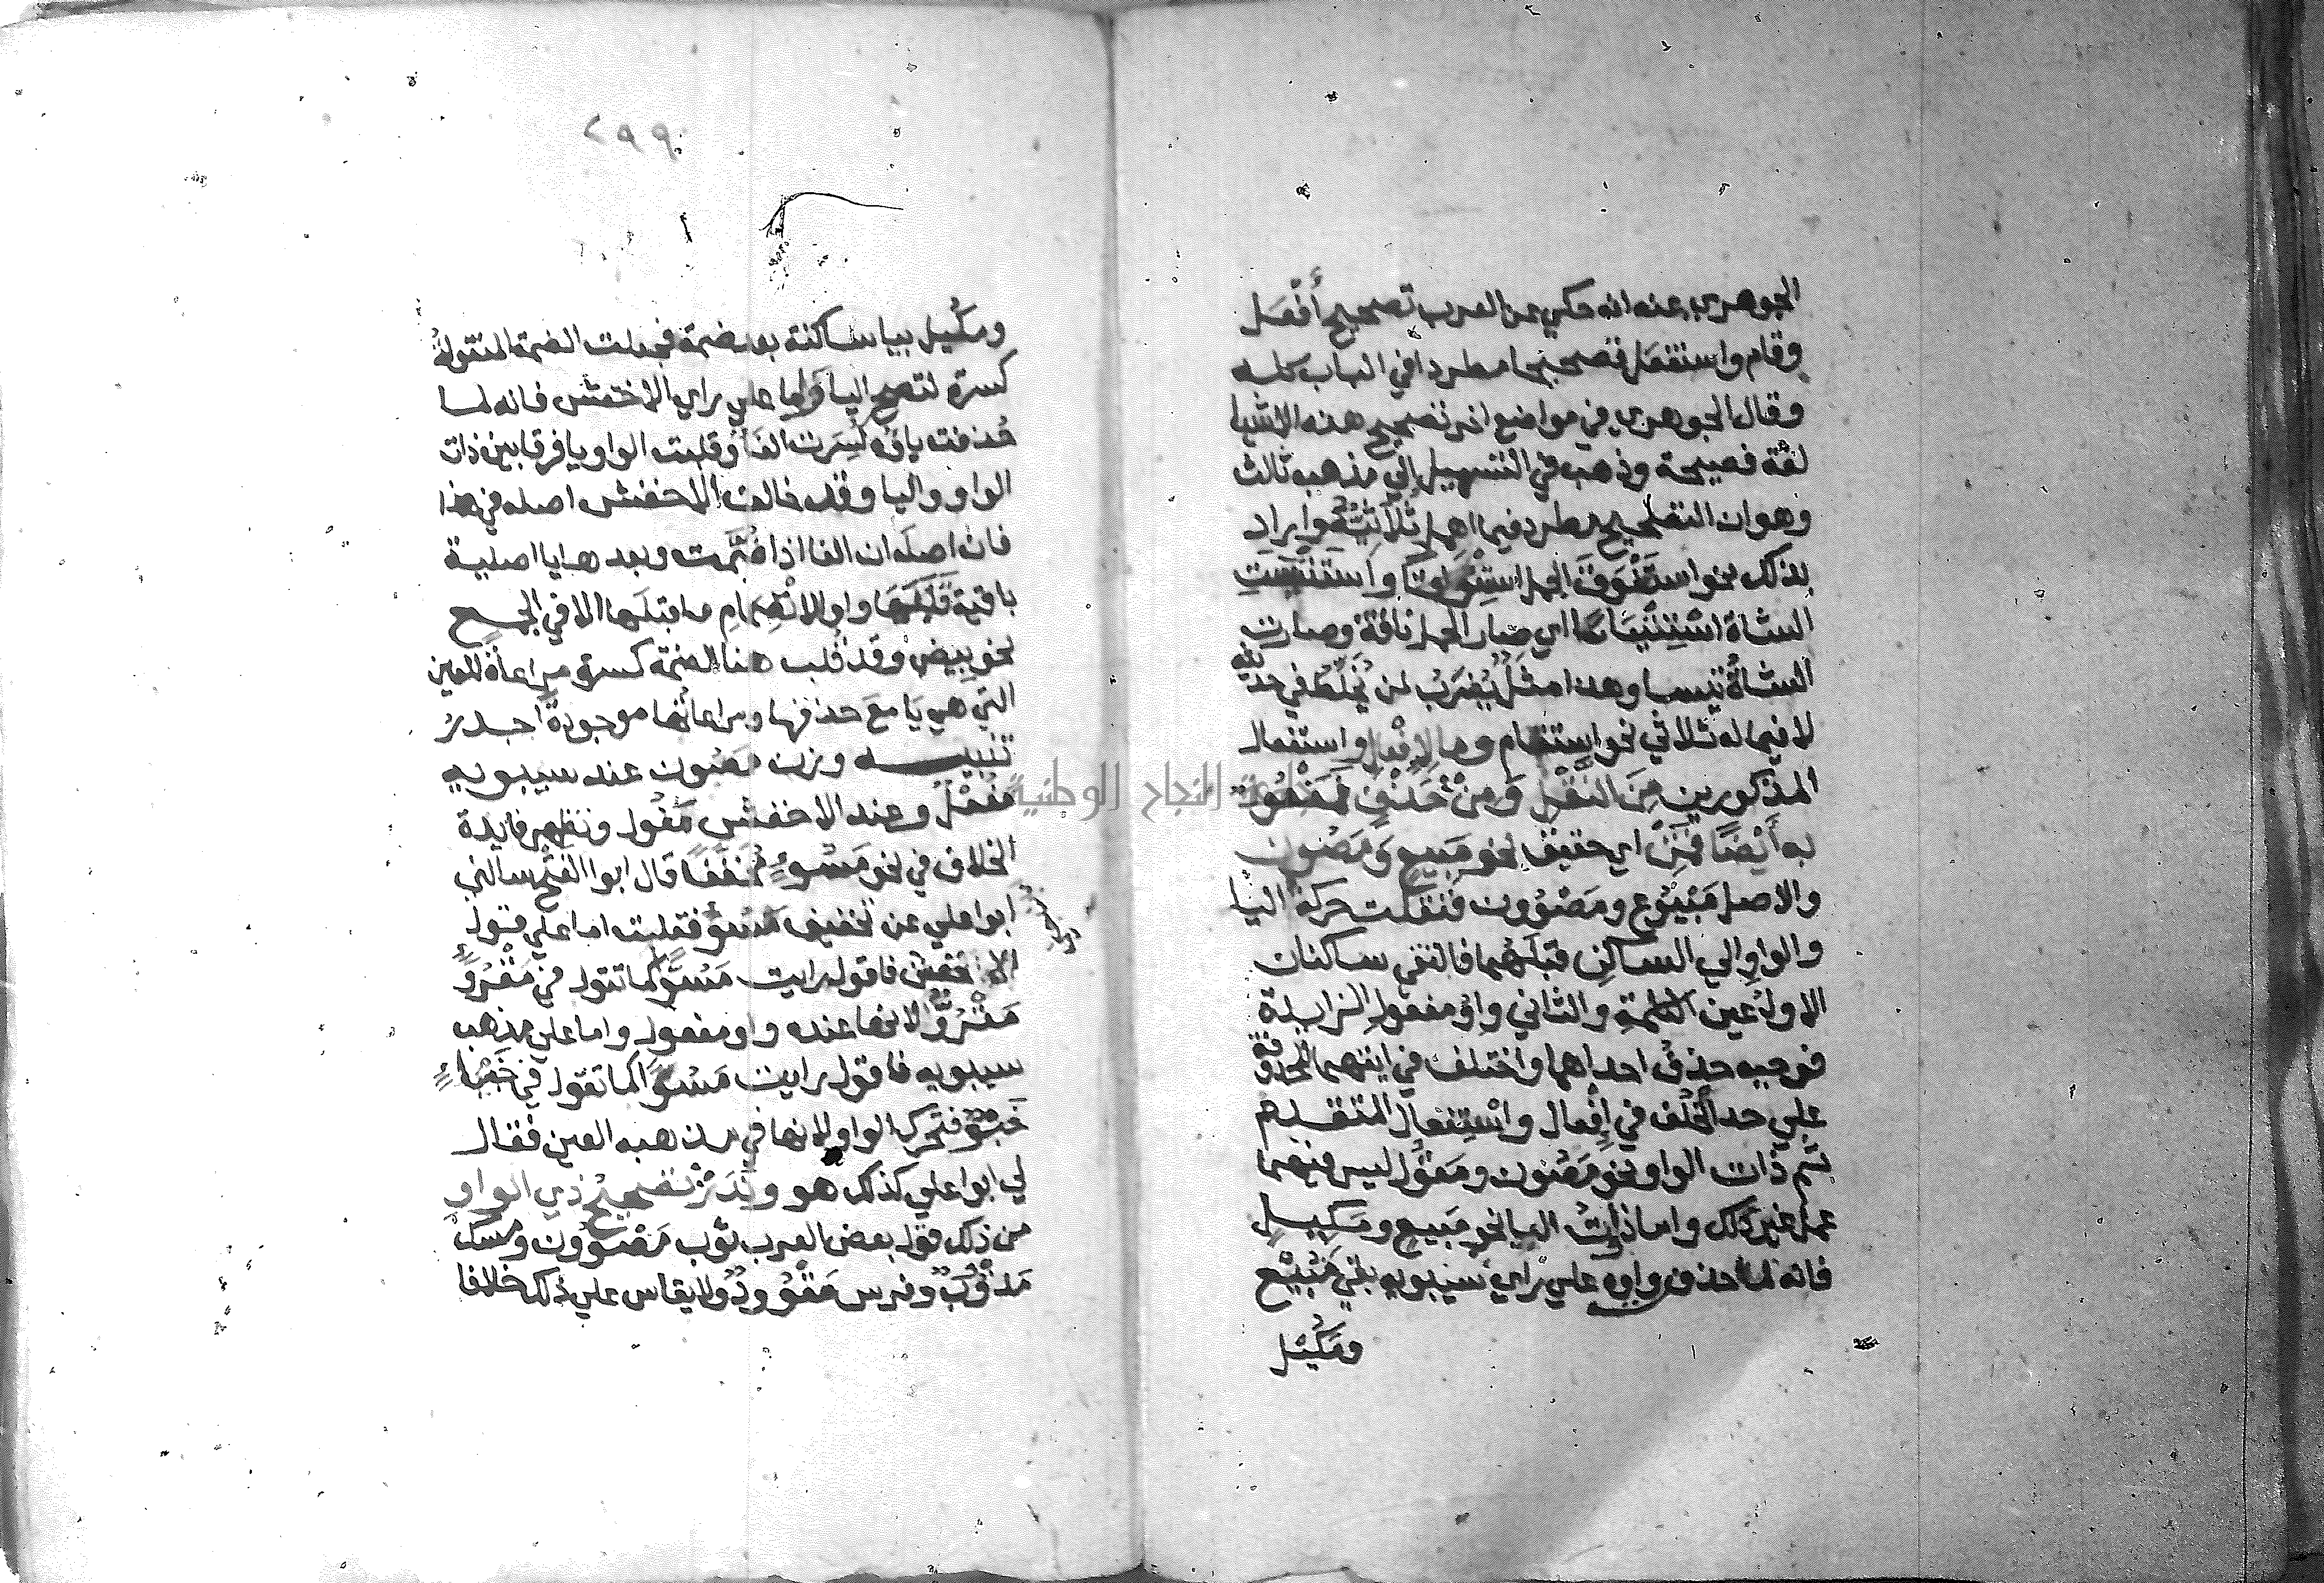 الجوهري عنه انه حكي عن العرب تصحيح أَفْعَل
وقام واستفعل تصحيحا مطردا في الباب كله
وقال الجوهري في مواضع اخر تصحيح هذه الاشيا
لغة فصيحة وذهب في التسهيل الي مذهب ثالث
وهو ان التصحيح مطرد فيما اهمل ثُلَاثيُّه واراد
بذلك نحو استَنْوَقَ الجمل اسْتِنْواقا واسْتَتْيَسَتِ
الشاة اسْتِتْيَاسًا اي صار الجمل ناقة وصارت
الشاةُ تيسا وهذا مثَلٌ يُضرَبُ لمن يُخَلِّطُ في حديثه
لا فيما له ثلاثي نحو استقام وما لِافْعالِ واستفعال
المذكورين مِنَ النَّقْلِ وَمِنْ حَذْفٍ فَمَفْعُولٌ
به أَيْضًا قَمِنْ اي حقيق نحو مَبِيعٍ وَمَصُونٍ
والاصل مَبْيُوْع ومَصْوُون فنقلت حركة اليا
والواوِ الي الساكنِ قبلَهُما فالتقي ساكنان
الاولُ عين الكلمةِ والثاني واوُ مفعولٍ الزايدة
فوجب حذفُ احداهما واختلف في ايتهما المحذوفة
علي حد الخُلْف في إِفْعال واسْتِفعال المتقدم
ثم ذات الواو نحو مَصُون ومَقُول ليس فيهما
عمل غير ذلك واما ذاتُ اليا نحو مَبِيعٍ ومَكِيلٍ
فانه لما حذف واوه علي راي سيبويه بقي مَبُيْع
ومَكُيْل
٢٩٩
ومكُيْل بيا ساكنة بعد ضمة فجعلت الضمة المنقولةُ
كسرة لتصح اليا وَاما علي راي الاخفش فانه لما
حُذفت ياؤه كُسِرَت الفَا وقلبت الواو يا فرقا بين ذات
الواو واليا وقد خالف الاخفش اصله في هذا
فان اصلَه ان الفا اذا ضُمَّت وبعدها يا اصلية
باقية قَلَبَها واوا لانْضِمامِ ما قبلَها الا في الجمع
نحو بِيض وقد قلب هنا الضمة كسرة مراعاة للعين
التي هي يَا مَعَ حذفها ومراعاتُها موجودةً اجدرُ
تنبيــه وزن مصون عند سيبويه
مَفُعْلٌ وعند الاخفش مَفُول وتظهر فايدة
الخلاف في نحو مَسُوءٍ مُخَفَّفًا قال ابوا الفتح سالني
ابوا علي عن تخفيف مَسُوء فقلت اما علي قول
الاخفش فاقول رايت مَسُوًّا كما تقول في مَقْرُوءٍ
مَقْرُوٌّ لانها عنده واو مفعول واما علي مذهب
سيبويه فاقول رايت مَسُوًا كما تقول في خَبْءٍ
خَبٌ فتحرك الواو لانها في مذهبه العين فقال
لي ابوا علي كذلك هو ونَدَرَ تصحيحُ ذي الواوِ
من ذلك قول بعض العرب ثوب مَصْوُون ومسك
مَدْوُوف وفرس مَقْوُودٌ ولا يقاس علي ذلك خلافا